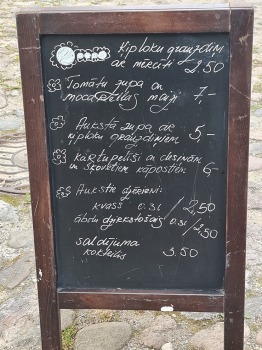 Ķiploku grauzdiņi
ar mērcīti 2,50
Tomātu zupa un
maizi 7,-
Aukstā zupa ar
ķiploku grauzdiņiem 5,-
kartupelīši un desiņām
un skovētiem kāpostiem 6,-
Aukstie dzērieni:
kvass 0.3l / 2,50
ābolu dzirkstošais 0.3l / 2,50
saldējuma
kokteilis 3.50